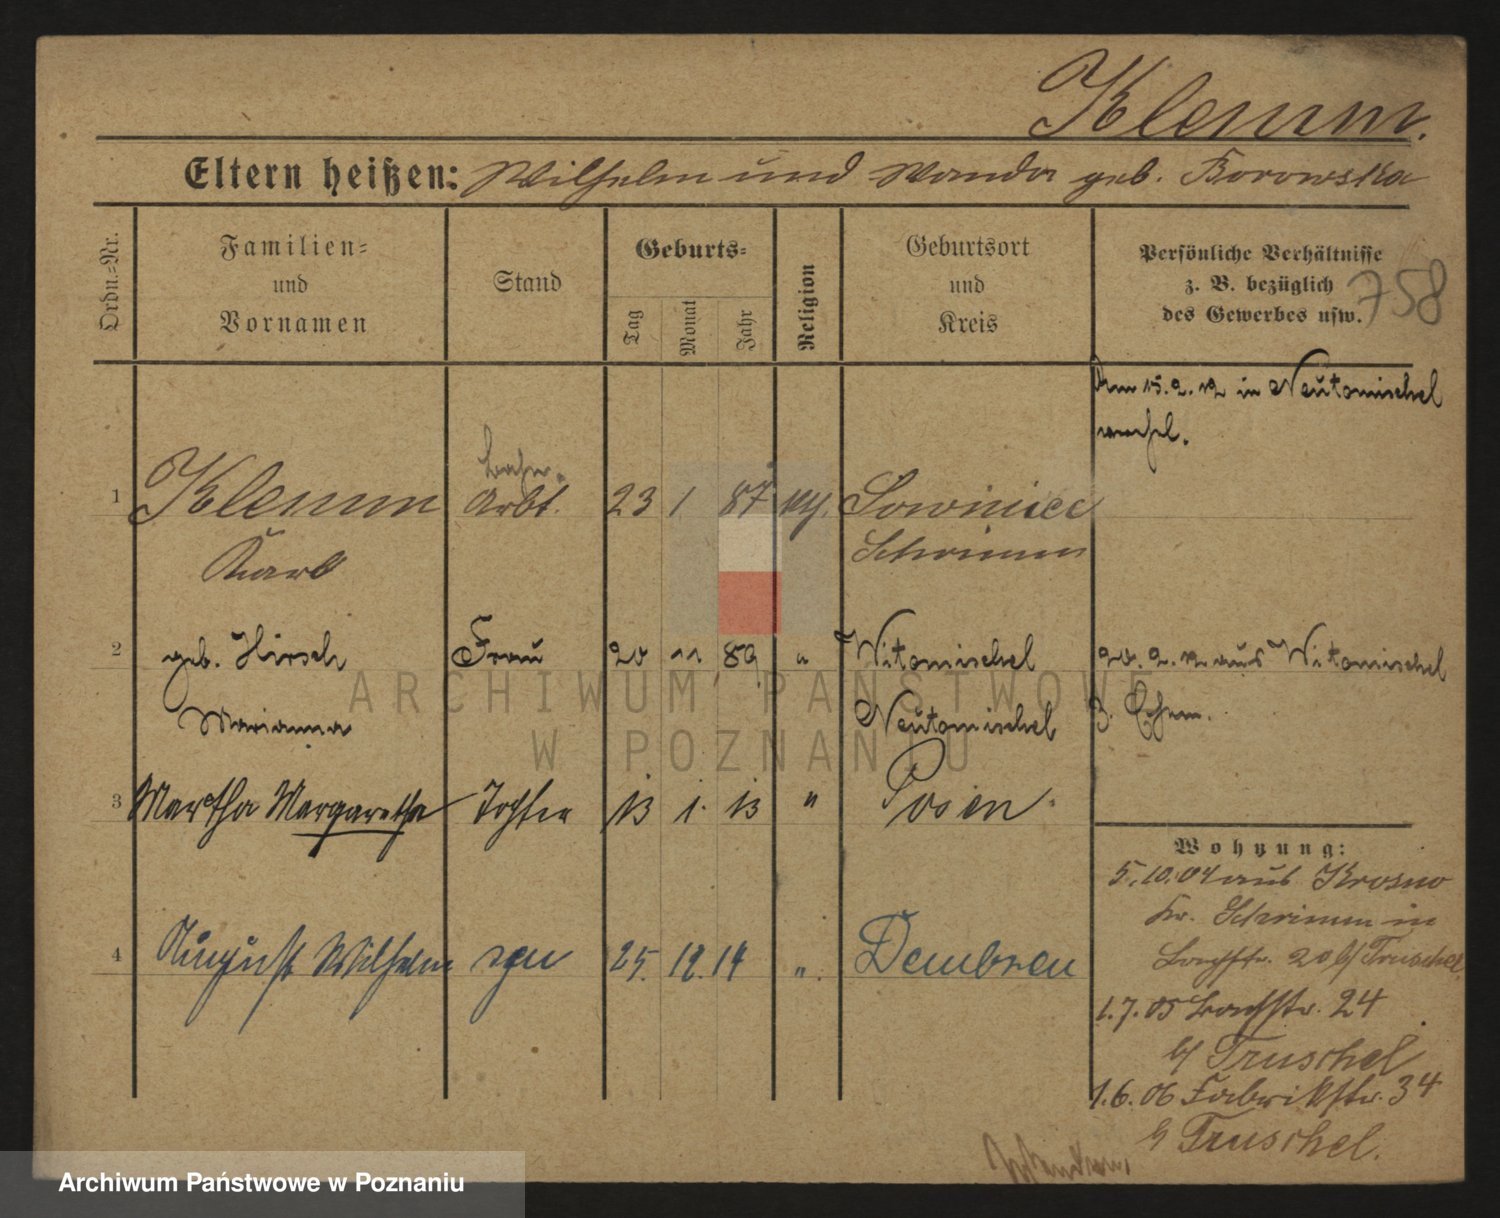 Klemm.
Eltern heißen: Wilhelm und Wanda geb. Borowska
Ordn.=Nr.
Familien=
und
Vornamen
Stand
Geburts=
Tag
Monat
Jahr
Religion
Geburtsort
und
Kreis
Persönliche Verhältnisse
z. B. bezüglich
des Gewerbes usw.
758
Am 15.2.12 in Neutomischel
verehel.
1 Klemm Arbt. 23 1 87 Sowiniec
Karl Schrimm
2 geb. Hirsch Frau 20 11 89 " Witomischel
20.2.12 aus Witomischel
Marianna Neutomischel
z. Ehem.
3 Martha Margarethe Tochter 13 1. 13 " Posen
4 August Wilhelm 25. 12. 14 " Dembsen
Wohnung:
5.10.04 aus Krosno
Kr. Schrimm in
20 b/ Truschel
1.7.05 24
b/ Truschel
1.6.06 Fabrikstr. 34
b/ Truschel.
ARCHIWUM PAŃSTWOWE
W POZNANIU
Archiwum Państwowe w Poznaniu